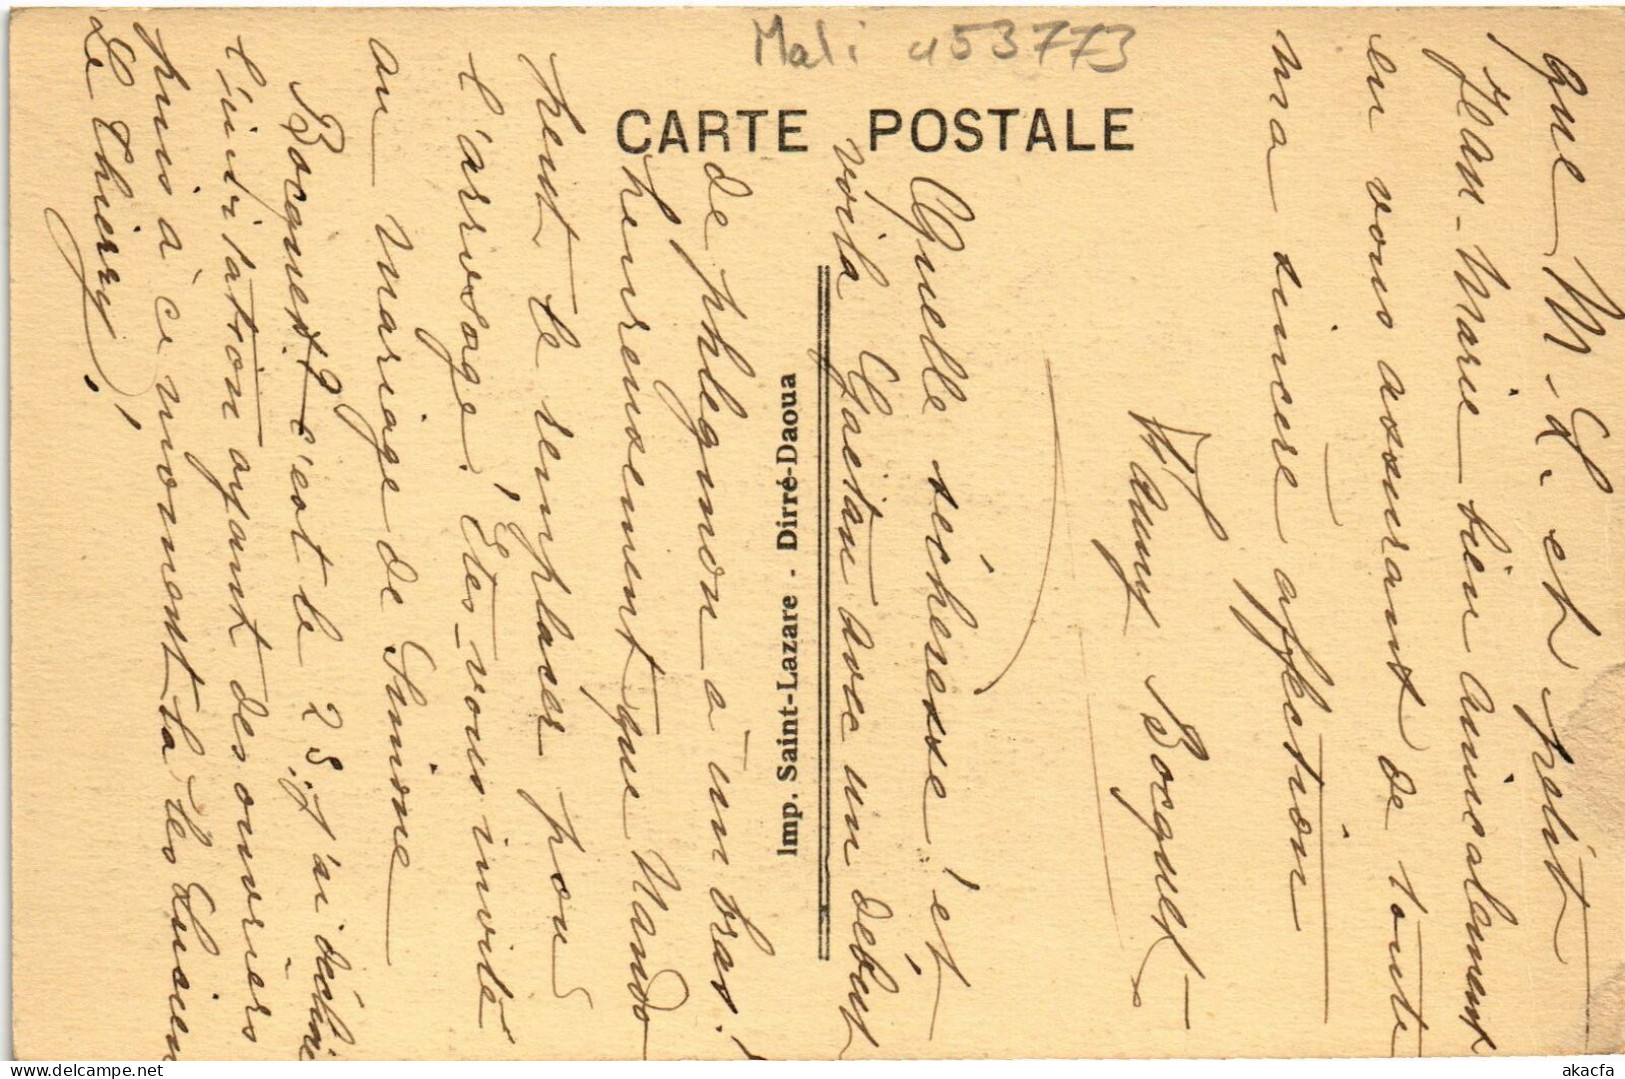 Mali
CARTE POSTALE
Imp. Saint-Lazare - Dirré-Daoua
que M. L. et petit
Jean-Marie bien amicalement
en vous assurant de toute
ma sincère affection
Bocquet
Quelle sécheresse! et
voilà Gaétan avec un début
de phlegmon à un bras!
heureusement que Nando
peut le remplacer pour
l'arrosage! Etes-vous invité
au mariage de Simone
Bocquet? c'est le 25, j'ai décliné
l'invitation ayant des ouvriers
puis à ce moment là les Lucien
Le Thierry!
akacfa